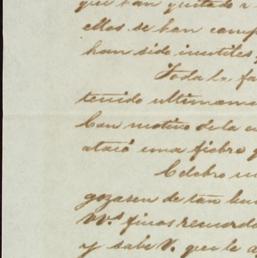 que han gustado
ellos se han
han sido inutiles
Toda la fa
tenido ultimam
Con motivo de la
atacó una fiebre
Celebro
gozasen de tan
Ms. finos recuerdo
y sabe V. que le a